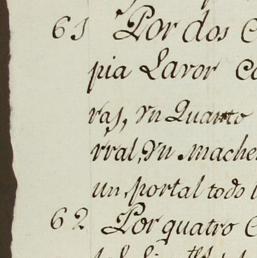 61 Por dos C
pia Lavor Co
ras, Yn Quarto
rral, Yn Mache
un portal todo
62 Por quatro C